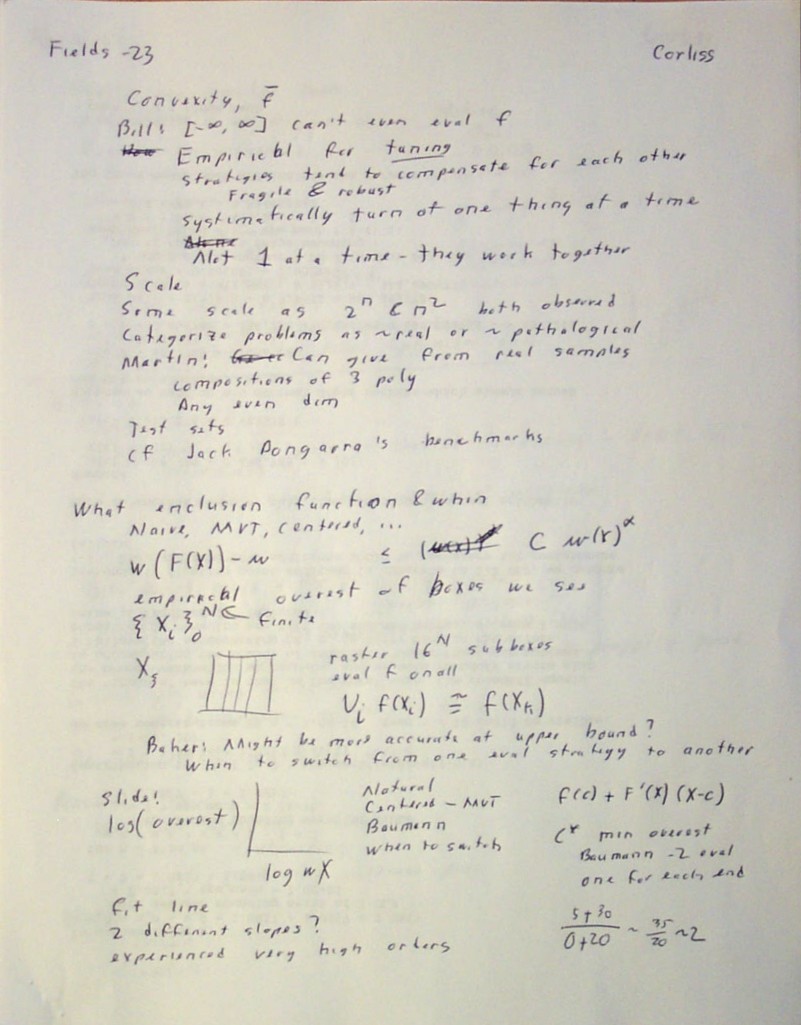 Fields -23
Corliss
Convexity, f̄
Bill: [-∞, ∞] can't even eval f
Empirical for tuning
strategies tend to compensate for each other
Fragile & robust
systematically turn of one thing at a time
Not 1 at a time - they work together
Scale
Some scale as 2ⁿ C n² both observed
Categorize problems as ~real or ~ pathological
Martin: Can give from real samples
compositions of 3 poly
Any even dim
Test sets
cf Jack Dongarra's benchmarks
What enclusion function & when
Naive, MVT, centered, ...
w(F(X)) - w ≤ C w(X)^α
empirical overest of boxes we see
{X_i}₀^N ← finite
raster 16^N subboxes
eval f on all
X_ξ
U_i f(X_i) ≅ f(X_k)
Baker: Might be more accurate at upper bound?
When to switch from one eval strategy to another
Slide:
log(overest)
log wX
Natural
Centered - MVT
Baumann
When to switch
f(c) + F'(X) (X-c)
C* min overest
Baumann - 2 eval
one for each end
Fit line
2 different slopes?
experienced very high orders
(5+30)/(0+20) ~ 35/20 ~2